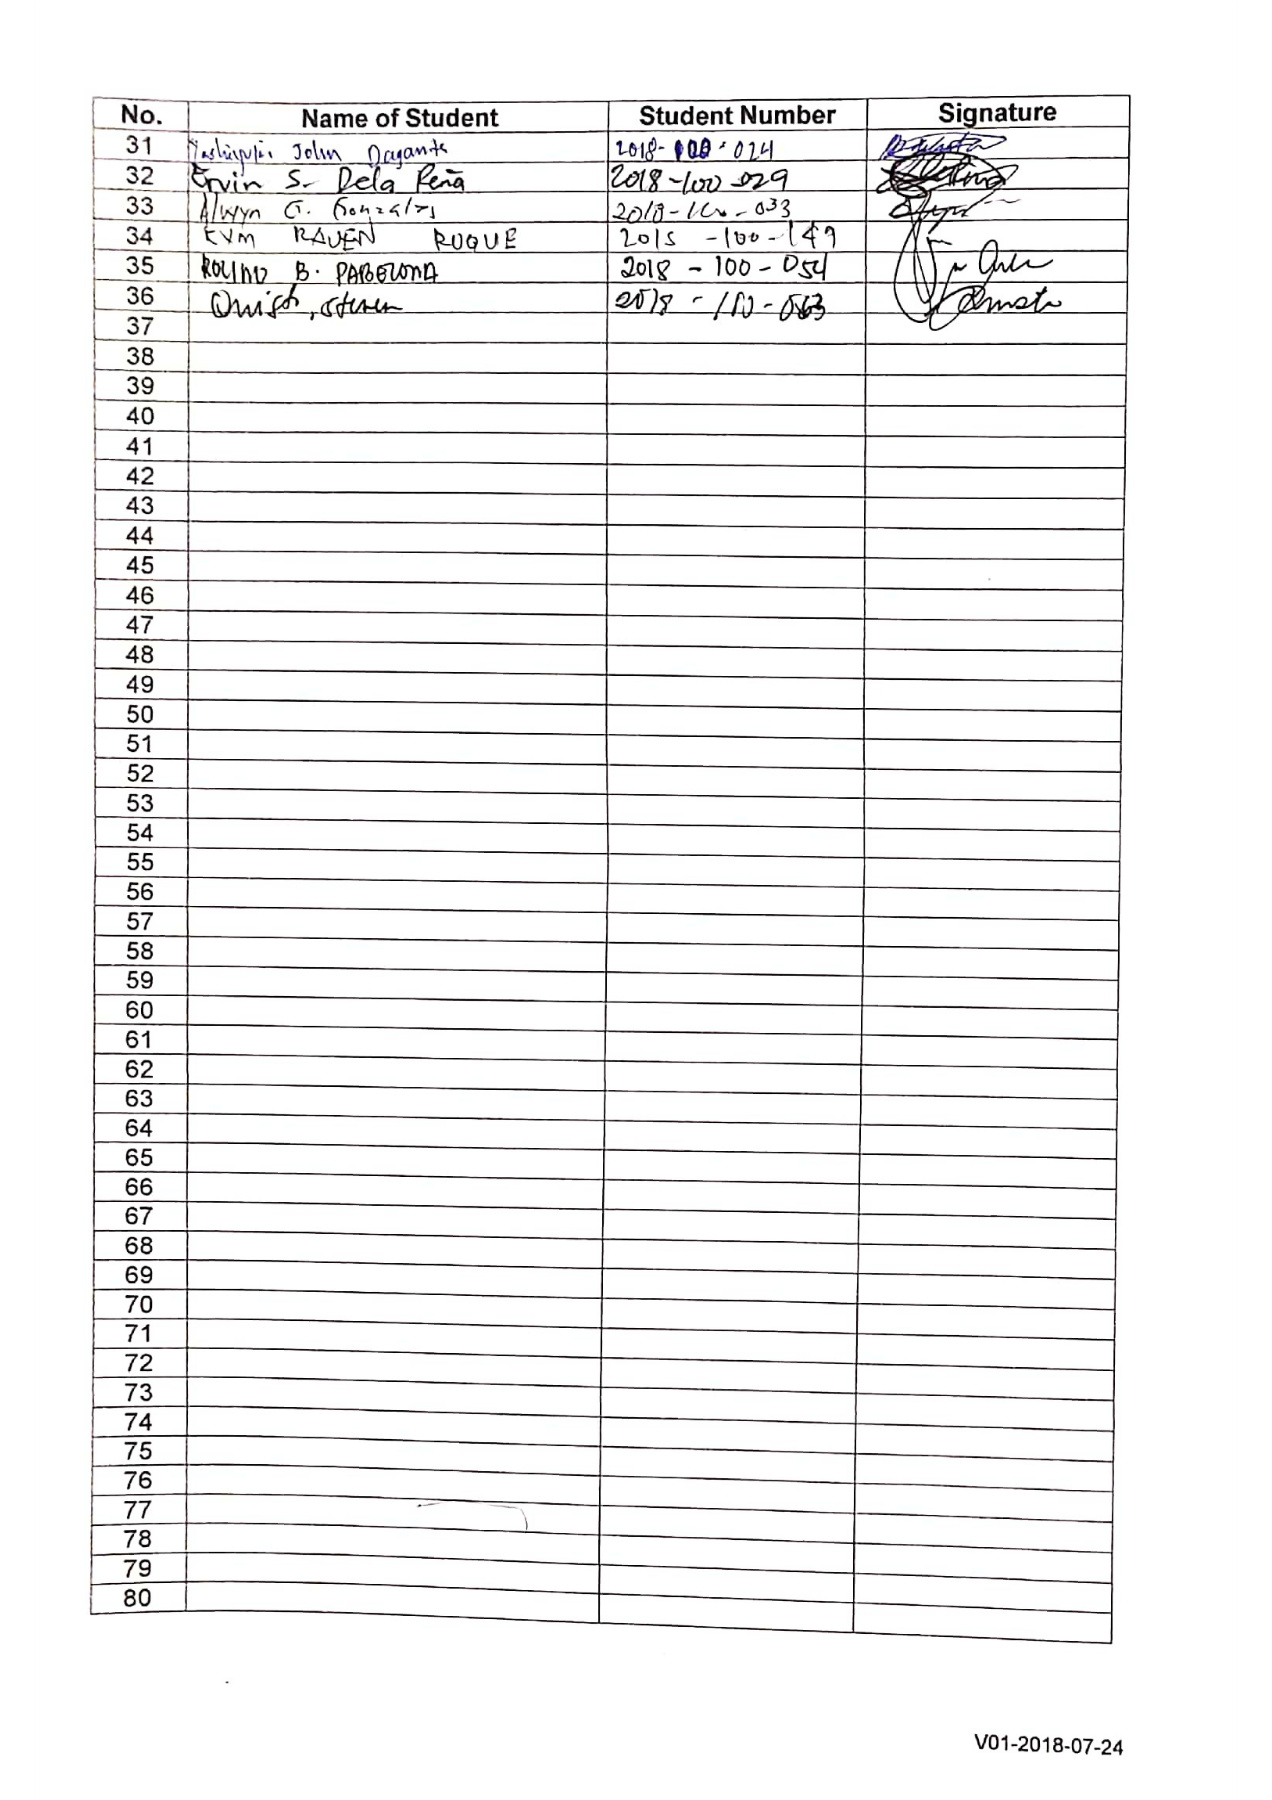 No. Name of Student Student Number Signature
31 John Dagante 2018-100-024
32 Ervin S. Dela Peña 2018-100-029
33 Alwyn G. Gonzales 2018-100-033
34 KYM RAVEN ROQUE 2015-100-149
35 B. PABELONA 2018-100-054
36 2018-100-063
37
38
39
40
41
42
43
44
45
46
47
48
49
50
51
52
53
54
55
56
57
58
59
60
61
62
63
64
65
66
67
68
69
70
71
72
73
74
75
76
77
78
79
80
V01-2018-07-24